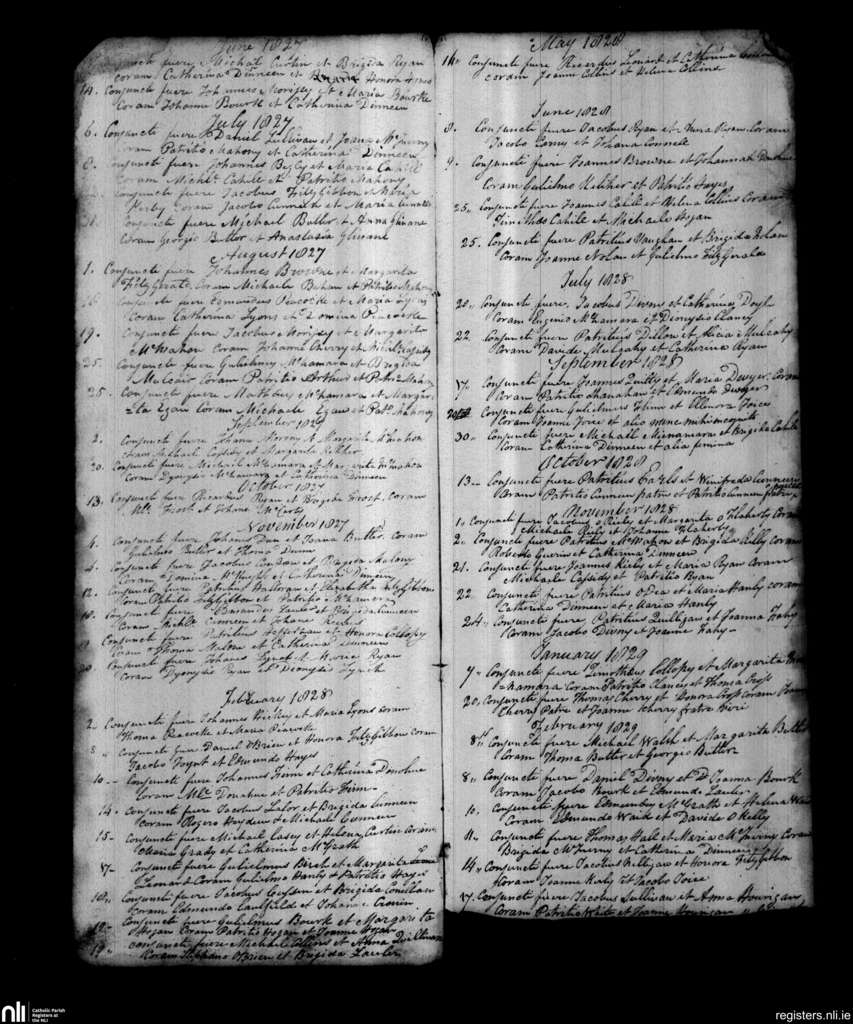 June 1827
fuere Michal Curlin et Brigida Ryan
coram Catherina Dinneen et Honora
14. Conjuncti fuere Johannes Morisey et Maria Bourke
Coram Johanne Bourk et Catherina Dinneen
July 1827
6. Conjuncti fuere Daniel Sullivan et Joana McInerny
Coram Patritio Mahony et Catherina Dinneen
Conjuncti fuere Johannes Begly et Maria Cahill
coram Michl. Cahill et Patritio Mahony
Conjuncti fuere Jacobus FitzGibbon et Maria
Kirby coram Jacobo et Maria
Conjuncti fuere Michael Butler et Anna Glisane
Coram Georgio Butler et Anastasia Glisane
August 1827
1. Conjuncti fuere Johannes Browne et Margarita
FitzGerald, Coram Michaele et Patritio
Conjuncti fuere Edmundus Peacocke et Maria Lyons
Coram Catherina Lyons et Domina Peacocke
19. Conjuncti fuere Jacobus Morisey et Margarita
McMahon Coram Johanne Cherry et
25. Conjuncti fuere Gulielmus McNamara et Brigida
Mulcair Coram Patritio Arthur et
25. Conjuncti fuere Matheus McNamara et Margari-
ta Egan Coram Michaele Egan et Pato. Mahony
September 1827
2. Conjuncti fuere Johannes et Margarita McMahon
Coram Michael Cassidy et Margarita Kelliher
20. Conjuncti fuere Michael McNamara et Margarita McMahon
Coram Dyonysio McNamara et Catherina Dinneen
October 1827
13. Conjuncti fuere Ricardus Ryan et Brigida Frost, Coram
Michl. Frost et Johane McCarty
November 1827
4. Conjuncti fuere Johannes Dun et Joana Butler, Coram
Gulielmo Butler et Thoma Dunn
4. Conjuncti fuere Jacobus Condon et Brigida Malony
Coram Domina et Catherina Dinneen
12. Conjuncti fuere Patritius Halloran et Elizabetha FitzGibbon
Coram Philippo FitzGibbon et Patritio McNamara
Conjuncti fuere Alexander Lawler et Brigida Cunneen
Coram Michl. Cunneen et Johane
Conjuncti fuere Patritius Heffernan et Honora Collopy
Coram Thoma Malone et Catherina Dinneen
20. Conjuncti fuere Johanes Lynch et Maria Ryan
Coram Dyonysio Ryan et Dyonysio Lynch
February 1828
2. Conjuncti fuere Johannes Hickey et Maria Lyons coram
Thoma Peacocke et Maria Peacocke
8. Conjuncti fuere Daniel O'Brien et Honora FitzGibbon Coram
Jacobo et Edmundo Hayes
10. Conjuncti fuere Johannes Finn et Catherina Donohue
Coram Michl. Donohue et Patritio Finn
14. Conjuncti fuere Jacobus Lalor et Brigida Cunneen
coram Rogero Hayden et Michaele Cunneen
15. Conjuncti fuere Michael Casey et Helena Curlin Coram
Maria Grady et Catherina McGrath
17. Conjuncti fuere Gulielmus Birch et Margarita
Leonard Coram Gulielmo Hanly et Patritio Hayes
18. Conjuncti fuere Jacobus et Brigida Conillan
coram Edmundo Caulfield et Johanne Cronin
19. Conjuncti fuere Gulielmus Bourk et Margarita
Hogan Coram Patritio Hogan et Joanne Hogan
19. Conjuncti fuere Michael Collins et Anna Quilliван
Coram Stephano O'Brien et Brigida Lawler
May 1828
14. Conjuncti fuere Ricardus Leonard et Catherina
coram Joanne Collins et Helena Collins
June 1828
8. Conjuncti fuere Jacobus Ryan et Anna Ryan, Coram
Jacobo Carey et Johana Connell
9. Conjuncti fuere Joannes Browne et Johannah
Coram Gulielmo Keliher et Patritio Hayes
25. Conjuncti fuere Joannes Cahill et Helena Collins Coram
Timotheo Cahill et Michaele Hogan
25. Conjuncti fuere Patritius Vaughan et Brigida Nolan
Coram Joanne Nolan et Gulielmo FitzGerald
July 1828
20. Conjuncti fuere, Jacobus Divny et Catherina Doyl
Coram Eugenio McNamara et Dionysio Clancy
22. Conjuncti fuere Patritius Dillon et Alicia Mulcahy
Coram Davide Mulcahy et Catherina Ryan
September 1828
17. Conjuncti fuere Joannes Quilty et Maria Dwyer, Coram
Coram Patritio Shanahan et Edmundo Dwyer
20. Conjuncti fuere Gulielmus Flinn et Ellenora Joice
Coram Joanne Joice et alio nunc mihi incognito
30. Conjuncti fuere Michael McNamara et Brigida Cahill
Coram Catherina Dinneen et alia femina
October 1828
13. Conjuncti fuere Patritius Earls et Winifreda Cunneen
Coram Patritio Cunneen patre et Patritio Cunneen fratre
November 1828
1. Conjuncti fuere Jacobus O'Riely et Margarita O'Flaherty Coram
Michaele Riely et Johanne Flaherty
2. Conjuncti fuere Patritius McMahon et Brigida Reilly coram
Roberto Guerin et Catherina Dinneen
21. Conjuncti fuere Joannes Kiely et Maria Ryan Coram
Michaele Cassidy et Patritio Ryan
22. Conjuncti fuere Patritius O'Dea et Maria Hanly coram
Catherina Dinneen et Maria Hanly
24. Conjuncti fuere, Patritius Quilligan et Joanna Fahy
Coram Jacobo Divny et Joanne Fahy
January 1829
7. Conjuncti fuere Timotheus Collopy et Margarita
Namara Coram Patritio Clancy et Thoma Cross
20. Conjuncti fuere Thomas Cherry et Honora Cross Coram
Cherry Patre et Joanne Cherry fratre Viri
February 1829
8. Conjuncti fuere Michael Walsh et Margarita Butler
Coram Thoma Butler et Georgio Butler
8. Conjuncti fuere Daniel Divny et Joanna Bourk
Coram Jacobo Bourk et Edmundo Lawler
10. Conjuncti fuere Edmundus McGrath et Helena
Coram Edmundo Waid et Davide O'Kelly
11. Conjuncti fuere Thomas Hall et Maria McInerny Coram
Brigida McInerny et Catherina Dinneen
14. Conjuncti fuere Jacobus Kelligan et Honora FitzGibbon
Coram Joanna Kirby et Jacobo Joice
17. Conjuncti fuere Jacobus Sullivan et Anna Hourigan
Coram Patritio et Joanne Hourigan
nli
Catholic Parish
Registers at
the NLI
registers.nli.ie